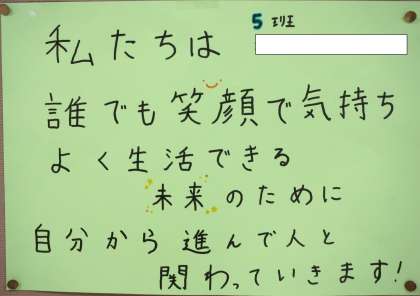 5班
私たちは
誰でも笑顔で気持ち
よく生活できる
未来のために
自分から進んで人と
関わっていきます!